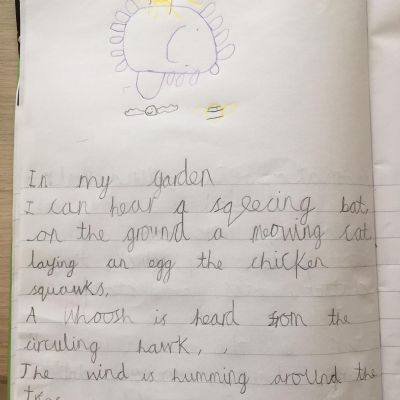 In my garden
I can hear a sqeecing bat,
on the ground a meowing cat,
laying an egg the chicken
squawks,
A Whoosh is heard from the
circuling hawk,
The wind is humming around the